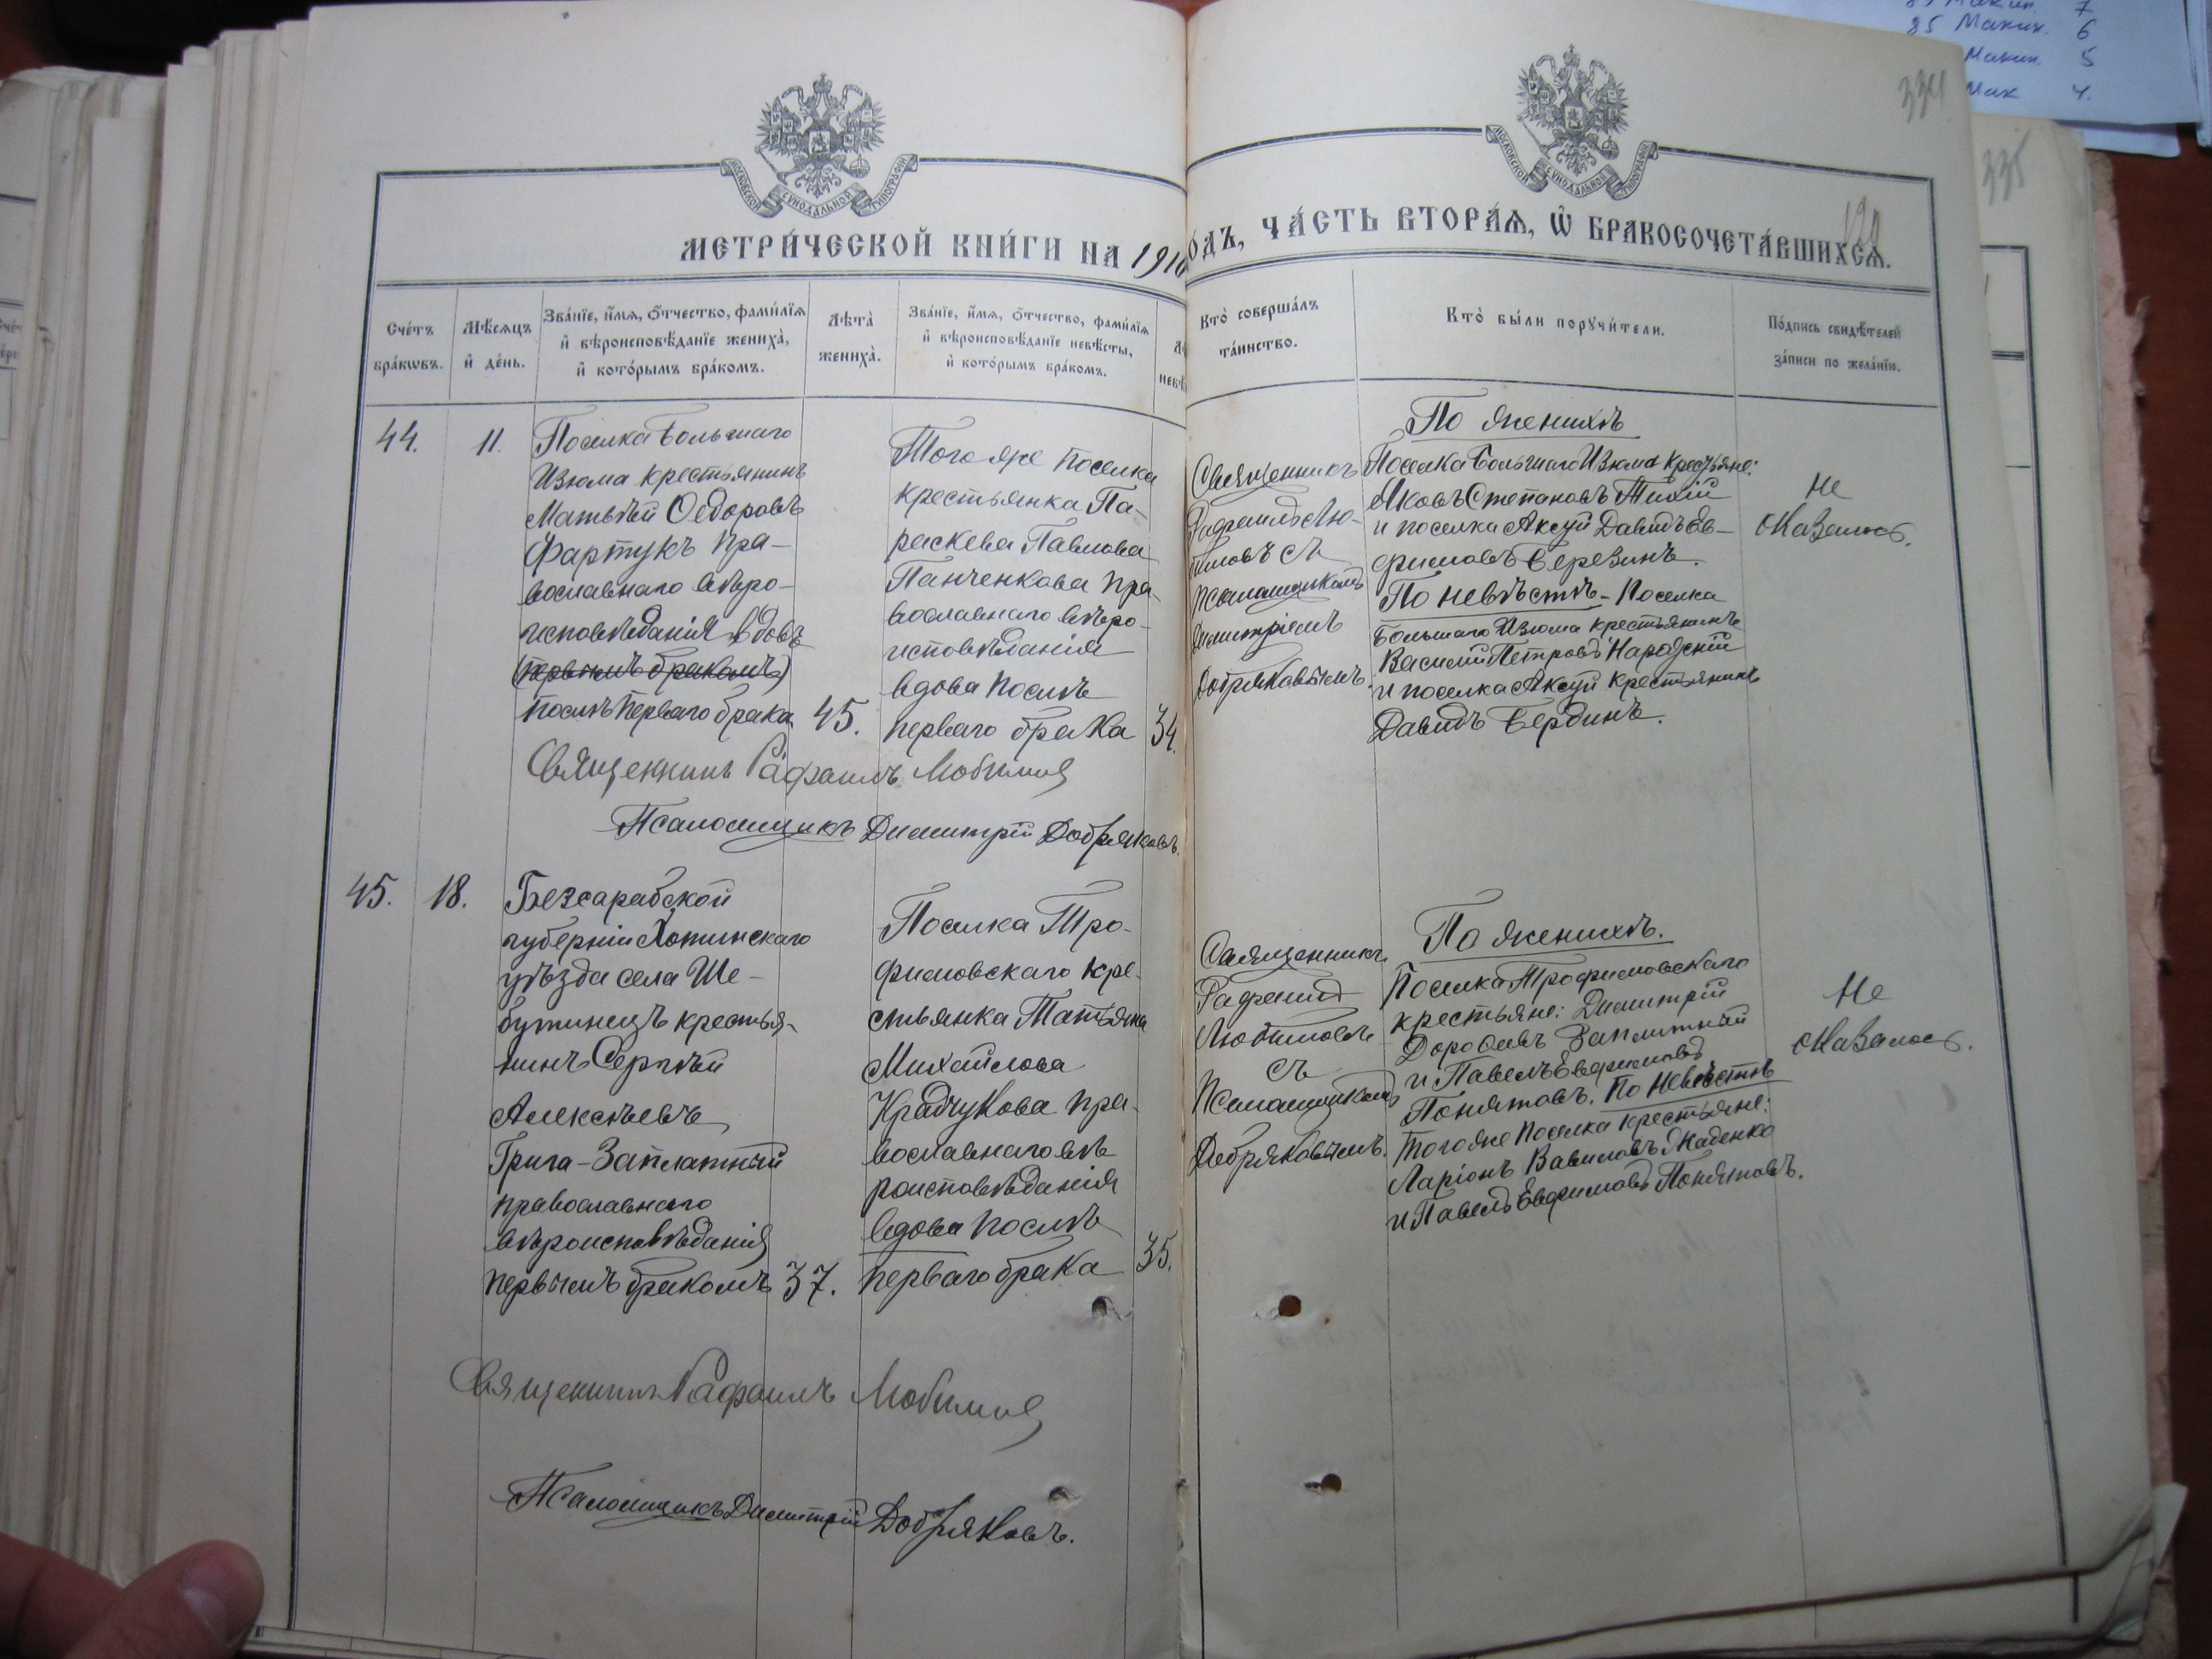 85 Макин. 7
85 Макин. 6
Макин. 5
Мак 4.
334
335
МОСКОВСКОЙ СУНОДАЛЬНОЙ ТИПОГРАФІИ
МОСКОВСКОЙ СУНОДАЛЬНОЙ ТИПОГРАФІИ
МЕТРИ́ЧЕСКОЙ КНИ́ГИ НА 1910
О́ДЪ, ЧА́СТЬ ВТОРА́Ѧ, Ѽ БРАКОСОЧЕТА́ВШИХСѦ.
Сче́тъ бра́кѡвъ.
Мѣ́сѧцъ и҆ де́нь.
Зва́нїе, и҆́мѧ, ѻ҆́тчество, фами́лїѧ
и҆ вѣроисповѣ́данїе жениха̀,
и҆ кото́рымъ бра́комъ.
Лѣта̀ жениха̀.
Зва́нїе, и҆́мѧ, ѻ҆́тчество, фами́лїѧ
и҆ вѣроисповѣ́данїе невѣ́сты,
и҆ кото́рымъ бра́комъ.
Кто̀ соверша́лъ
та́инство.
Кто̀ бы́ли порꙋчи́тели.
По́дпись свидѣ́телей
за́писи по жела́нїю.
44.
11.
Поселка Большаго
Изюма крестьянинъ
Матвѣй Ѳедоровъ
Фартукъ пра-
вославнаго вѣро-
исповѣданія вдовъ
(первымъ бракомъ)
послѣ перваго брака
45.
Того же поселка
крестьянка Па-
раскева Павлова
Панченкова пра-
вославнаго вѣро-
исповѣданія
вдова послѣ
перваго брака
34.
Священникъ
Рафаилъ Лю-
бимовъ съ
псаломщикомъ
Димитріемъ
Добряковымъ.
По женихѣ
Поселка Большаго Изюма крестьяне:
Яковъ Степановъ Тихій
и поселка Аксуй Давидъ Ев-
фимовъ Березинъ.
По невѣстѣ - Поселка
Большаго Изюма крестьянинъ
Василій Петровъ
и поселка Аксуй крестьянинъ
Давидъ Бердинъ.
Не
оказалось.
Священникъ Рафаилъ Любимовъ
Псаломщикъ Димитрій Добряковъ.
45.
18.
Безсарабской
губерніи Хотинскаго
уѣзда села Ше-
бутинецъ крестья-
нинъ Сергѣй
Алексѣевъ
Грига-Заплатный
православнаго
вѣроисповѣданія
первымъ бракомъ
37.
Поселка Тро-
фимовскаго кре-
стьянка Татьяна
Михайлова
Крадчукова пра-
вославнаго вѣ
роисповѣданія
вдова послѣ
перваго брака
35.
Священникъ
Рафаилъ
Любимовъ
съ
Псаломщикомъ
Добряковымъ.
По женихѣ.
Поселка Трофимовскаго
крестьяне: Димитрій
Дороѳеевъ Заплитный
и Павелъ Евфимовъ
Понятовъ. По невѣстѣ
того же поселка крестьяне:
Ларіонъ Вавиловъ
и Павелъ Евфимовъ Понятовъ.
Не
оказалось.
Священникъ Рафаилъ Любимовъ
Псаломщикъ Димитрій Добряковъ.